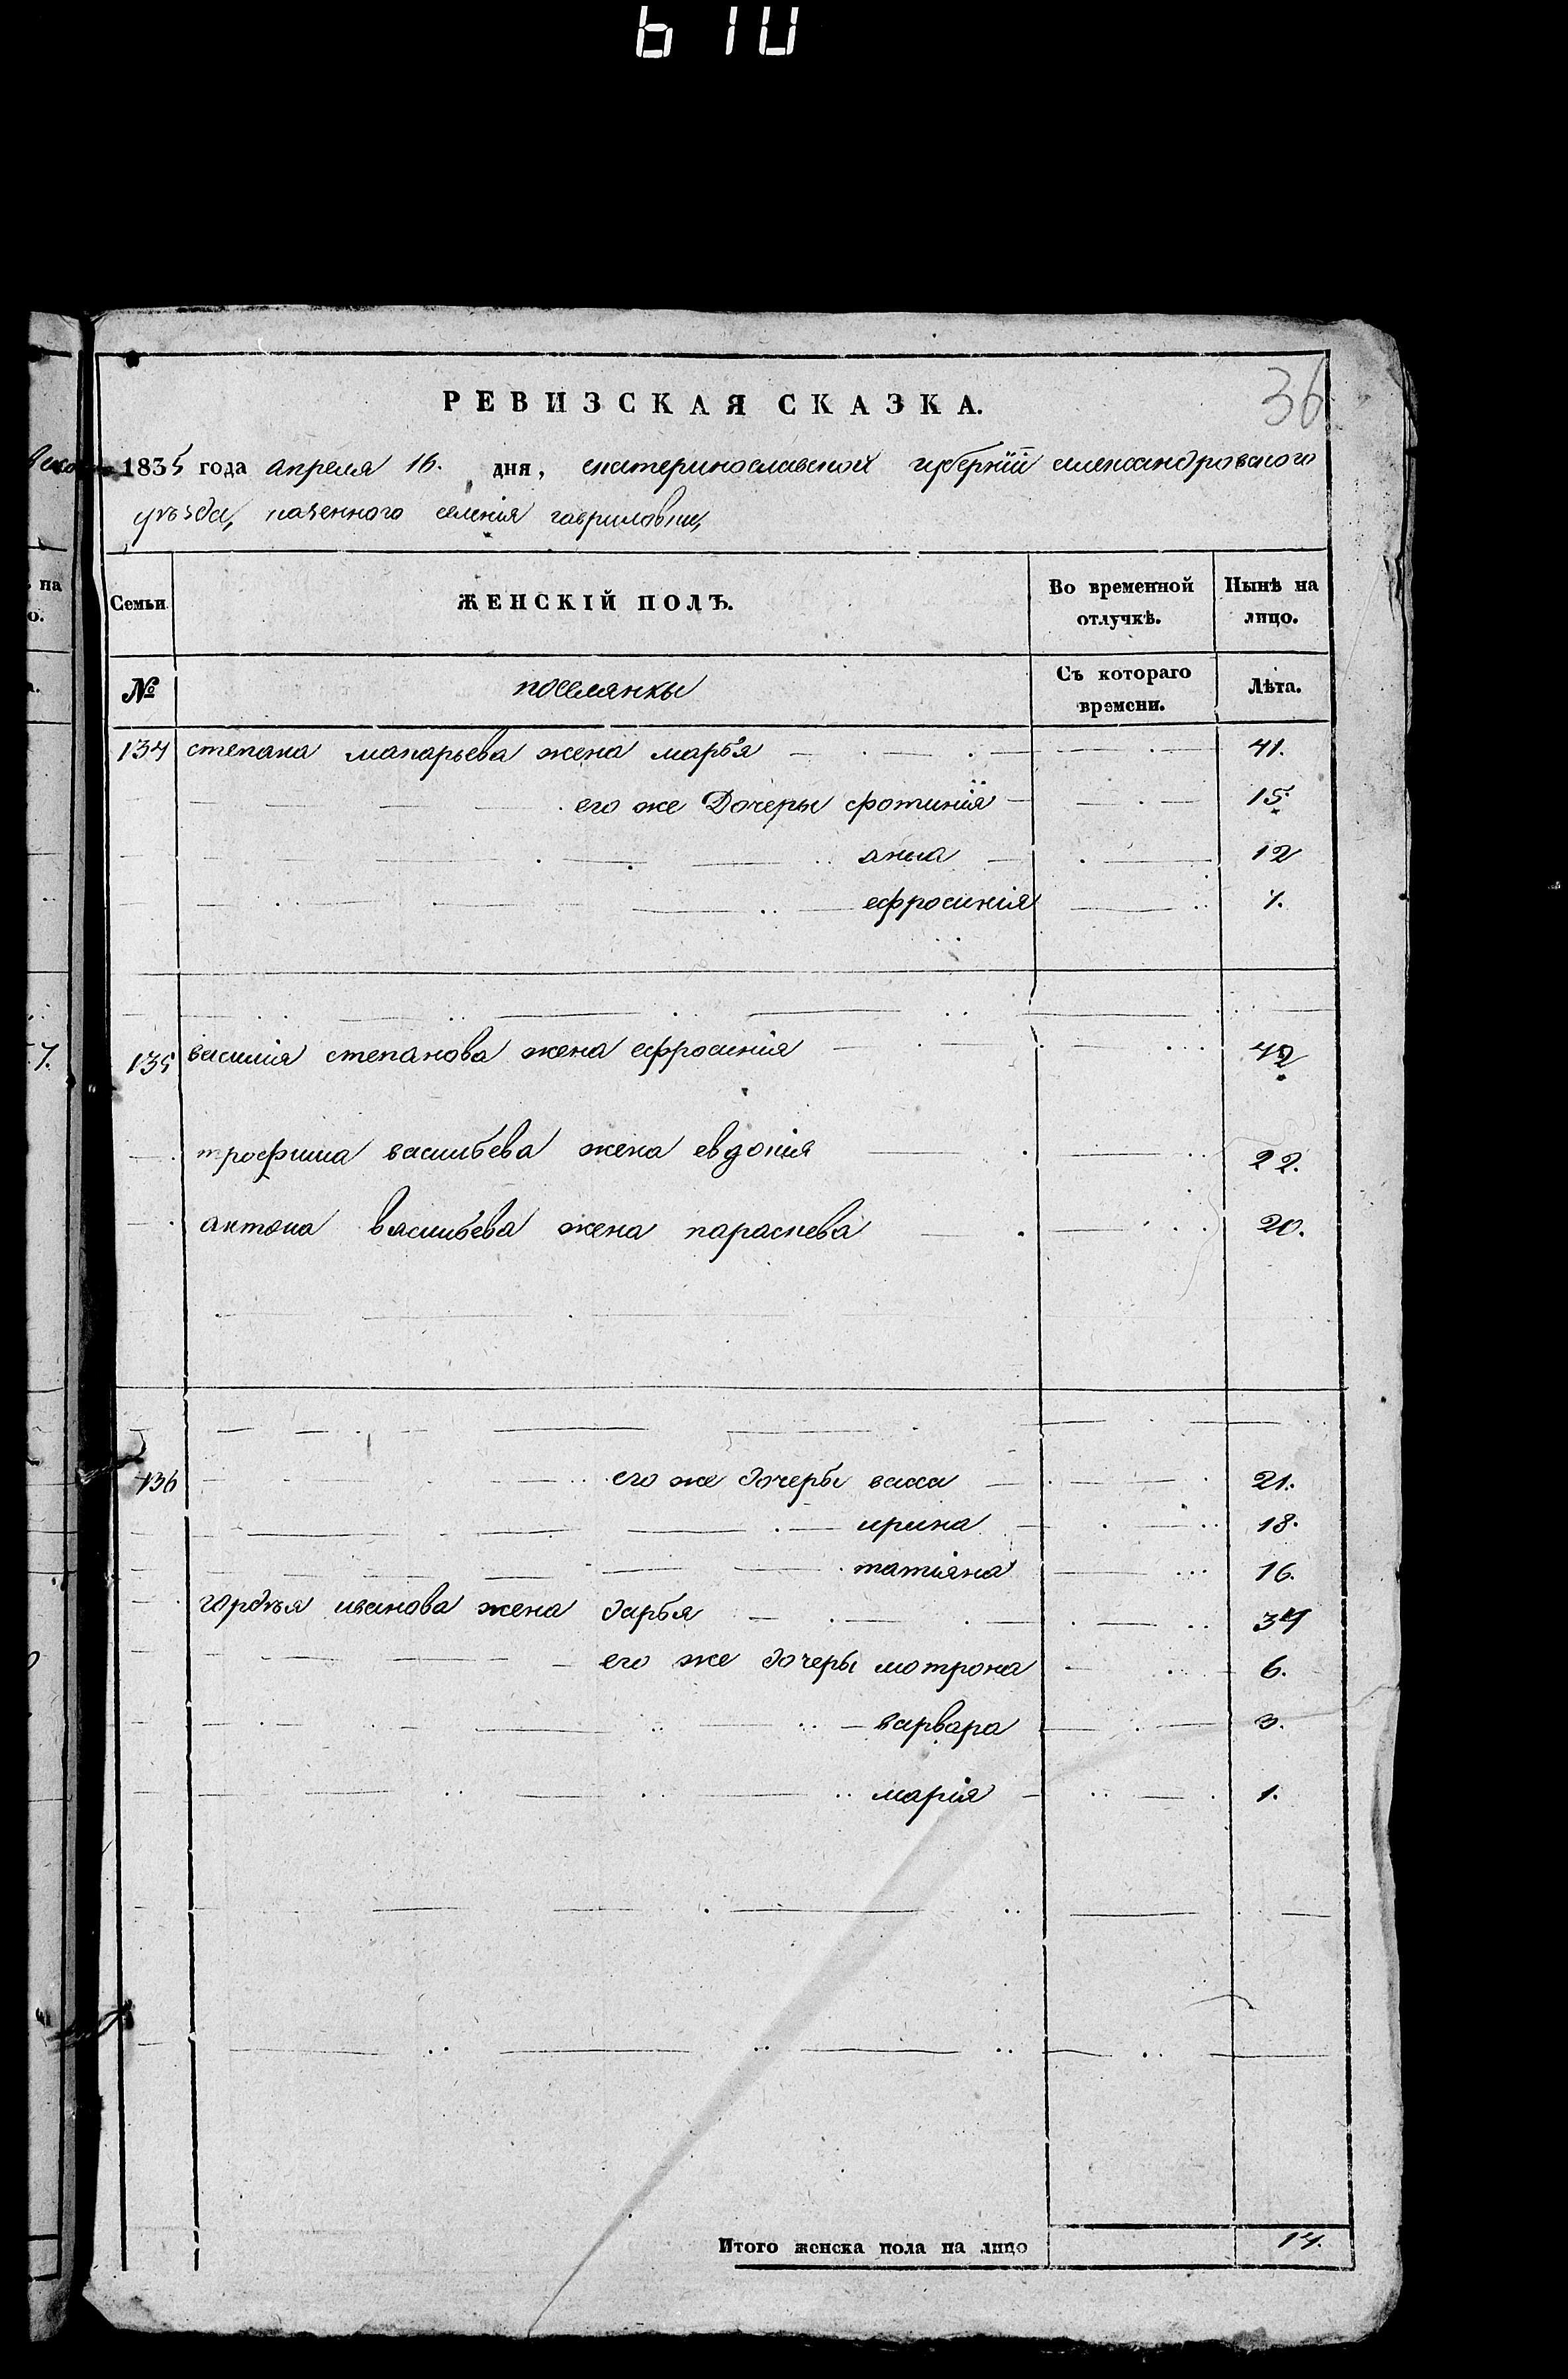 610
36
РЕВИЗСКАЯ СКАЗКА.
1835 года апреля 16. дня, екатеринославской губерніи александровского
уѣзда, казенного селенія гавриловки,
Семьи ЖЕНСКІЙ ПОЛЪ. Во временной отлучкѣ. Нынѣ на лицо.
№ поселянкы Съ котораго времени. Лѣта.
134 степана макарьева жена марья 41.
его же Дочеры фотинія 15.
анна 12
ефросинія 7.
135 василія степанова жена ефросинія 42
трофима васильева жена евдокія 22.
антона васильева жена параскева 20.
136 его же дочеры васса 21.
ирина 18.
татіяна 16.
гордѣя иванова жена дарья 34
его же дочеры мотрона 6.
варвара 3.
марія 1.
Итого женска пола на лицо 14.